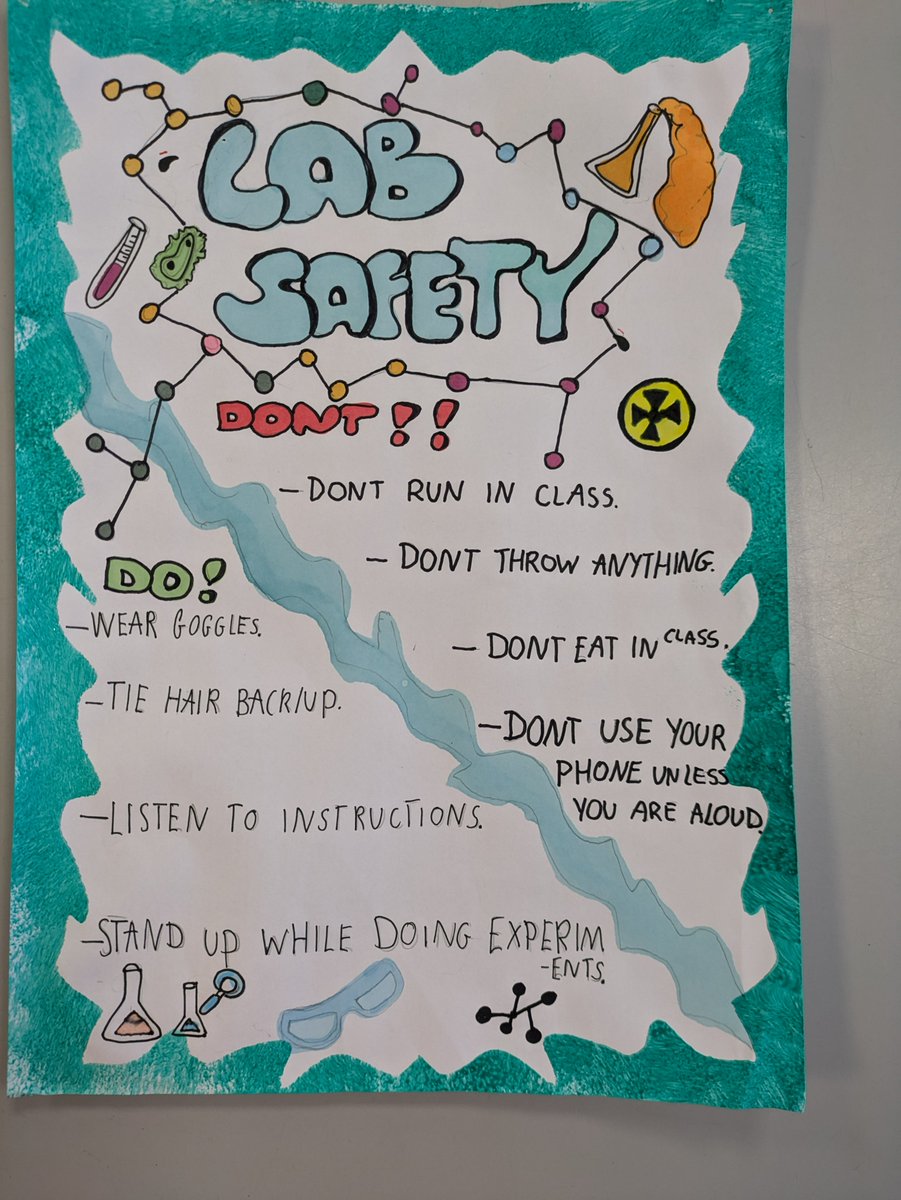 LAB
SAFETY
DONT!!
- DONT RUN IN CLASS.
- DONT THROW ANYTHING.
- DONT EAT IN CLASS.
- DONT USE YOUR
PHONE UNLESS
YOU ARE ALOUD.
DO!
- WEAR GOGGLES.
- TIE HAIR BACK/UP.
- LISTEN TO INSTRUCTIONS.
- STAND UP WHILE DOING EXPERIM
-ENTS.